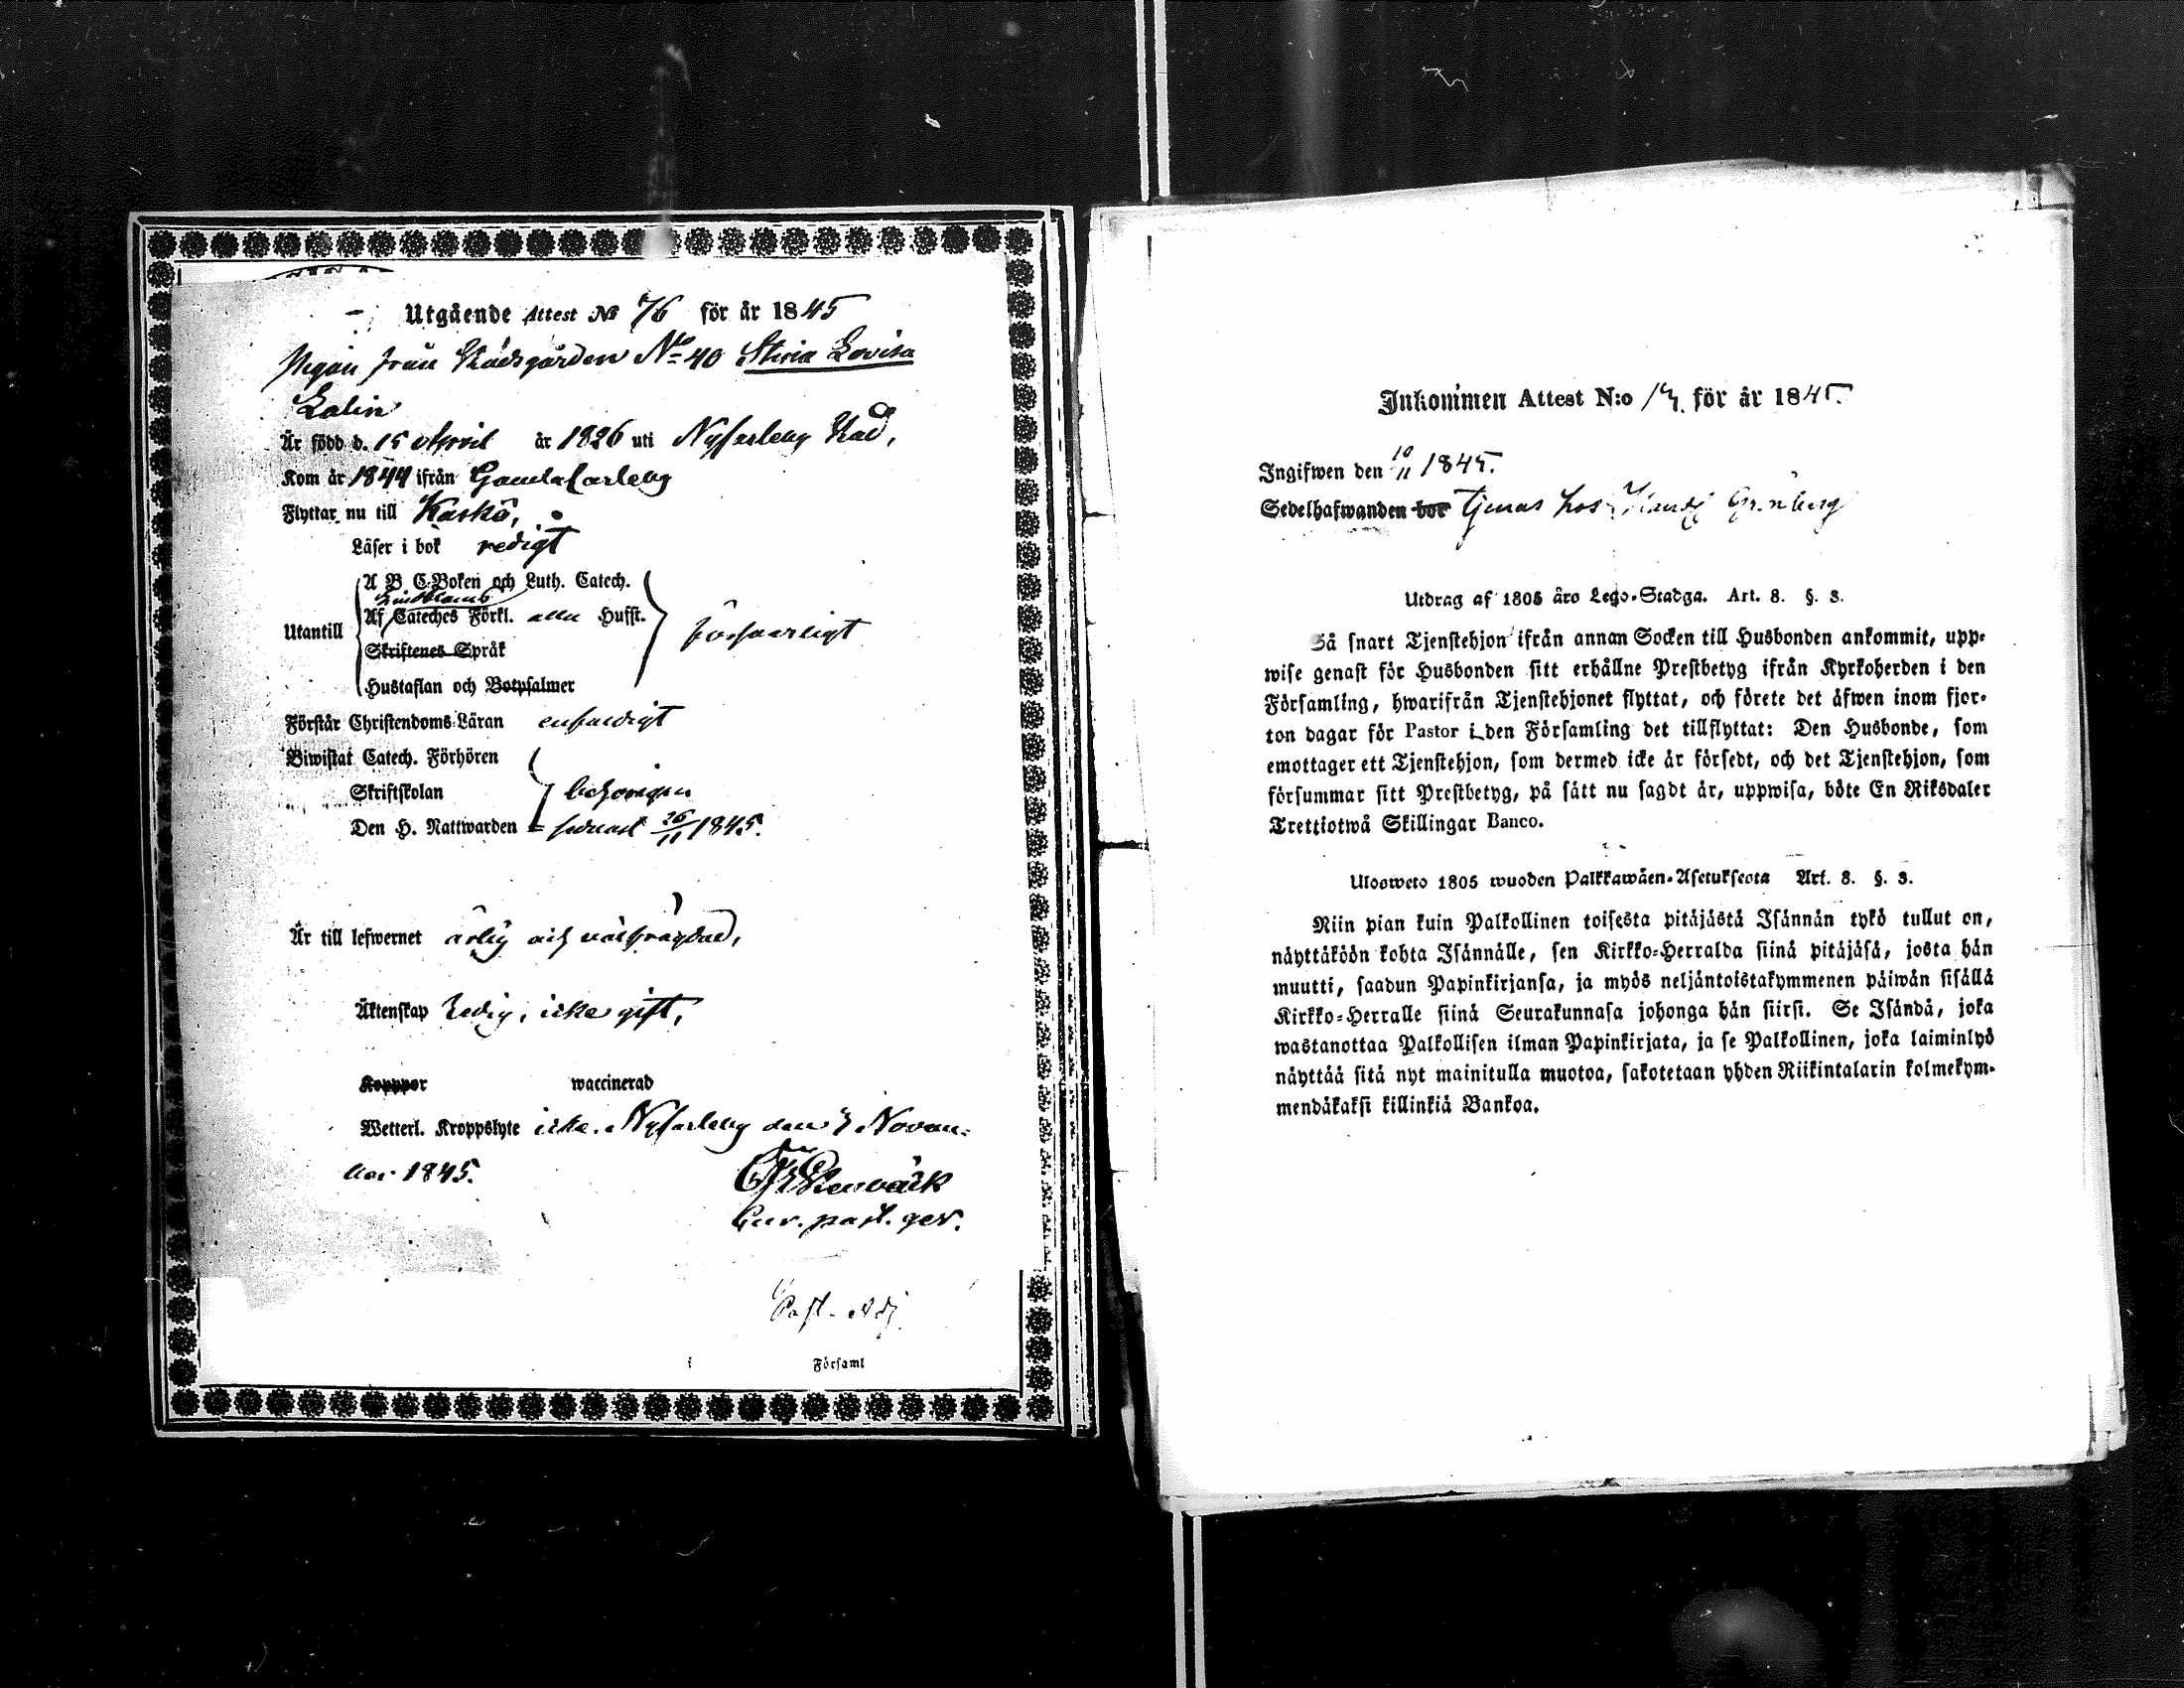 Utgående Attest № 76 för år 1845
Pigan från Stadsgården No 40 Lovisa
Är född d. 15 April år 1826 uti Nycarleby Stad,
Kom år 1844 ifrån Gamlacarleby
Flyttar nu till Kaskö,
Läser i bok redigt
A B C-Boken och Luth. Catech.
Af Cateches Förkl. alla Husst.
Utantill försvarligt
Skriftenes Språk
Hustaflan och Botpsalmer
Förstår Christendoms-Läran enfaldigt
Biwistat Catech. Förhören
Skriftskolan behörigen
Den H. Nattwarden senast 1845.
Är till lefwernet ärlig och välfrägdad,
Äktenskap Ledig, icke gift,
Kopppor waccinerad
Wetterl. Kroppslyte icke. Nycarleby den Novem-
ber 1845.
Cur. past. ger.
Past. Adj.
i Församl
Inkommen Attest N:o för år 1845.
Ingifwen den 10/11 1845.
Sedelhafwanden bor tjenar hos Grönberg
Utdrag af 1805 års Lego-Stadga. Art. 8. §. 3.
Så snart Tjenstehjon ifrån annan Socken till Husbonden ankommit, upp-
wise genast för Husbonden sitt erhållne Prestbetyg ifrån Kyrkoherden i den
Församling, hwarifrån Tjenstehjonet flyttat, och förete det äfwen inom fjor-
ton dagar för Pastor i den Församling det tillflyttat: Den Husbonde, som
emottager ett Tjenstehjon, som dermed icke är försedt, och det Tjenstehjon, som
försummar sitt Prestbetyg, på sätt nu sagdt är, uppwisa, böte En Riksdaler
Trettiotwå Skillingar Banco.
Ulosweto 1805 wuoden Palkkawäen-Asetuksesta Art. 8. §. 3.
Niin pian kuin Palkollinen toisesta pitäjästä Isännän tykö tullut on,
näyttäköön kohta Isännälle, sen Kirkko-Herralda siinä pitäjäsä, josta hän
muutti, saadun Papinkirjansa, ja myös neljäntoistakymmenen päiwän sisällä
Kirkko-Herralle siinä Seurakunnasa johonga hän siirsi. Se Isändä, joka
wastanottaa Palkollisen ilman Papinkirjata, ja se Palkollinen, joka laiminlyö
näyttää sitä nyt mainitulla muotoa, sakotetaan yhden Riikintalarin kolmekym-
mendäkaksi killinkiä Bankoa.